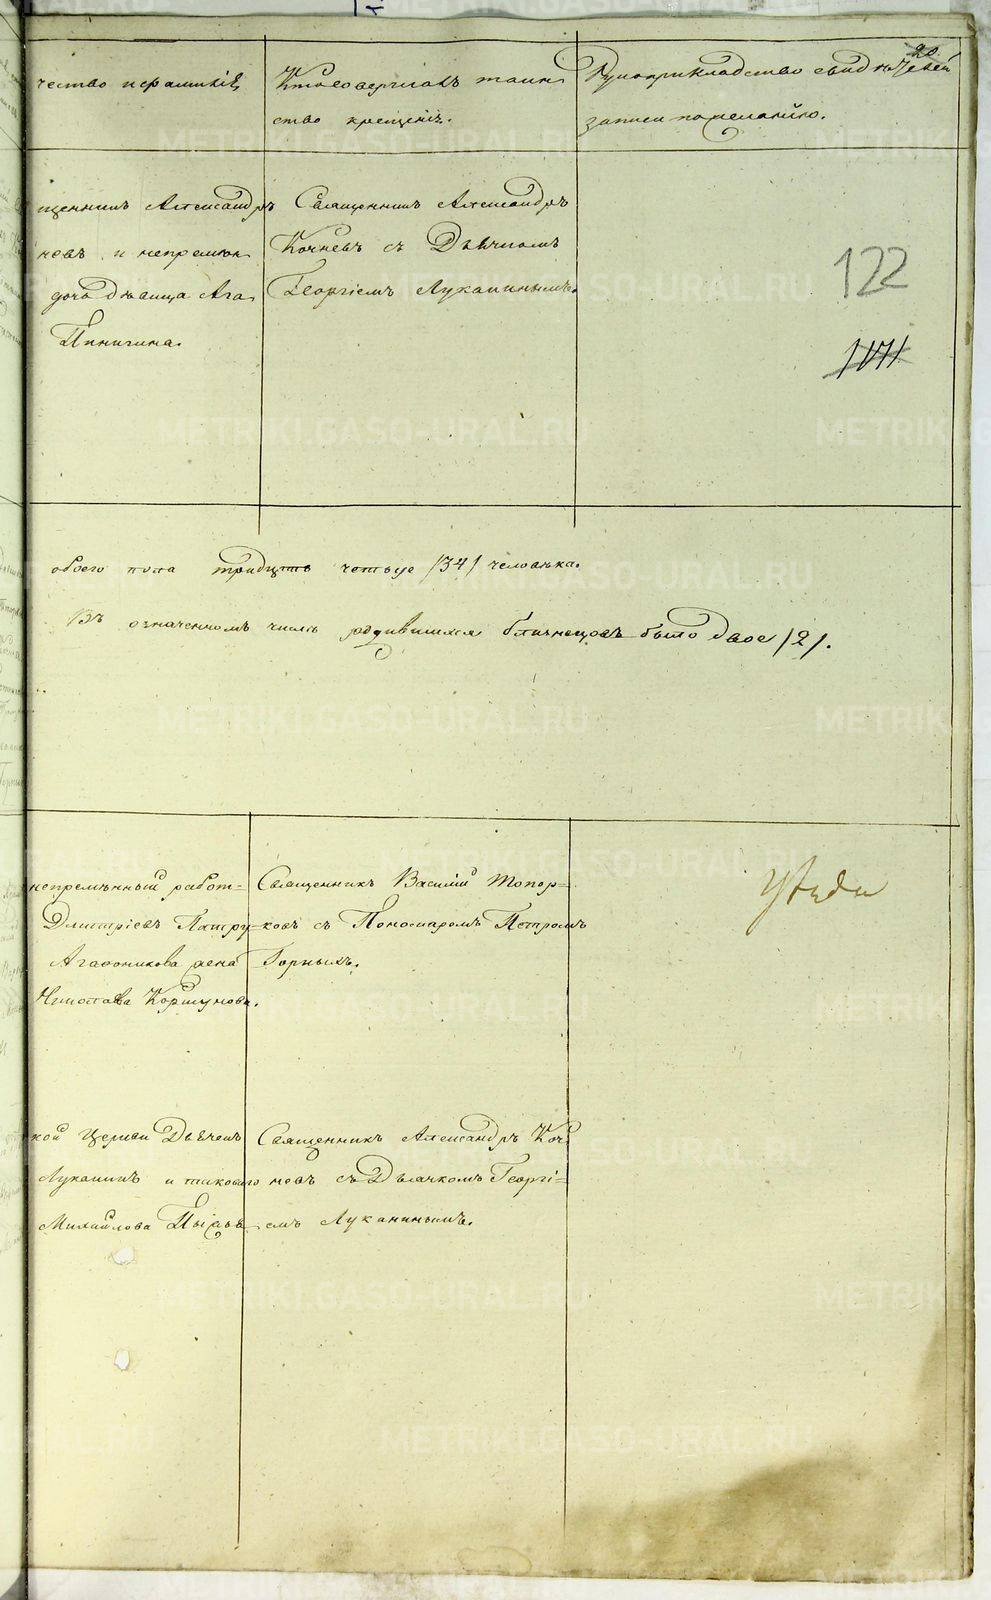 чество и фамилія
Кто совершалъ таин
ство крещенія.
Рукоприкладство свид
записи по желанію.
20
щенникъ Александръ
невъ и непремѣн
дочь дѣвица Ага
Пинигина.
Священникъ Александръ
Кочневъ съ Дьячкомъ
Георгіемъ Луканинымъ.
122
обоего пола тридцать четыре /34/ человѣка.
Въ означенномъ числѣ родившихся близнецовъ было двое /2/.
непремѣнный работ=
Дмитріевъ Патру
Агафоникова жена
Коршунова.
Священникъ Василій Топор=
ковъ съ Пономаремъ Петромъ
Горныхъ.
кой Церкви Дьячекъ
Луканинъ и таковаго
Михайлова
Священникъ Александръ Коч
невъ съ Дьячкомъ Георгі=
емъ Луканинымъ.
METRIKI.GASO-URAL.RU